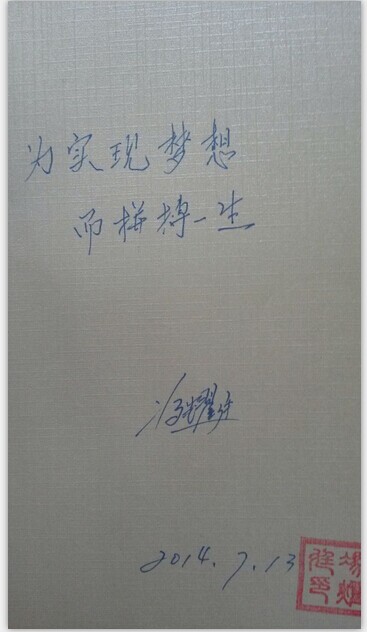 为实现梦想
而拼搏一生
2014.7.13